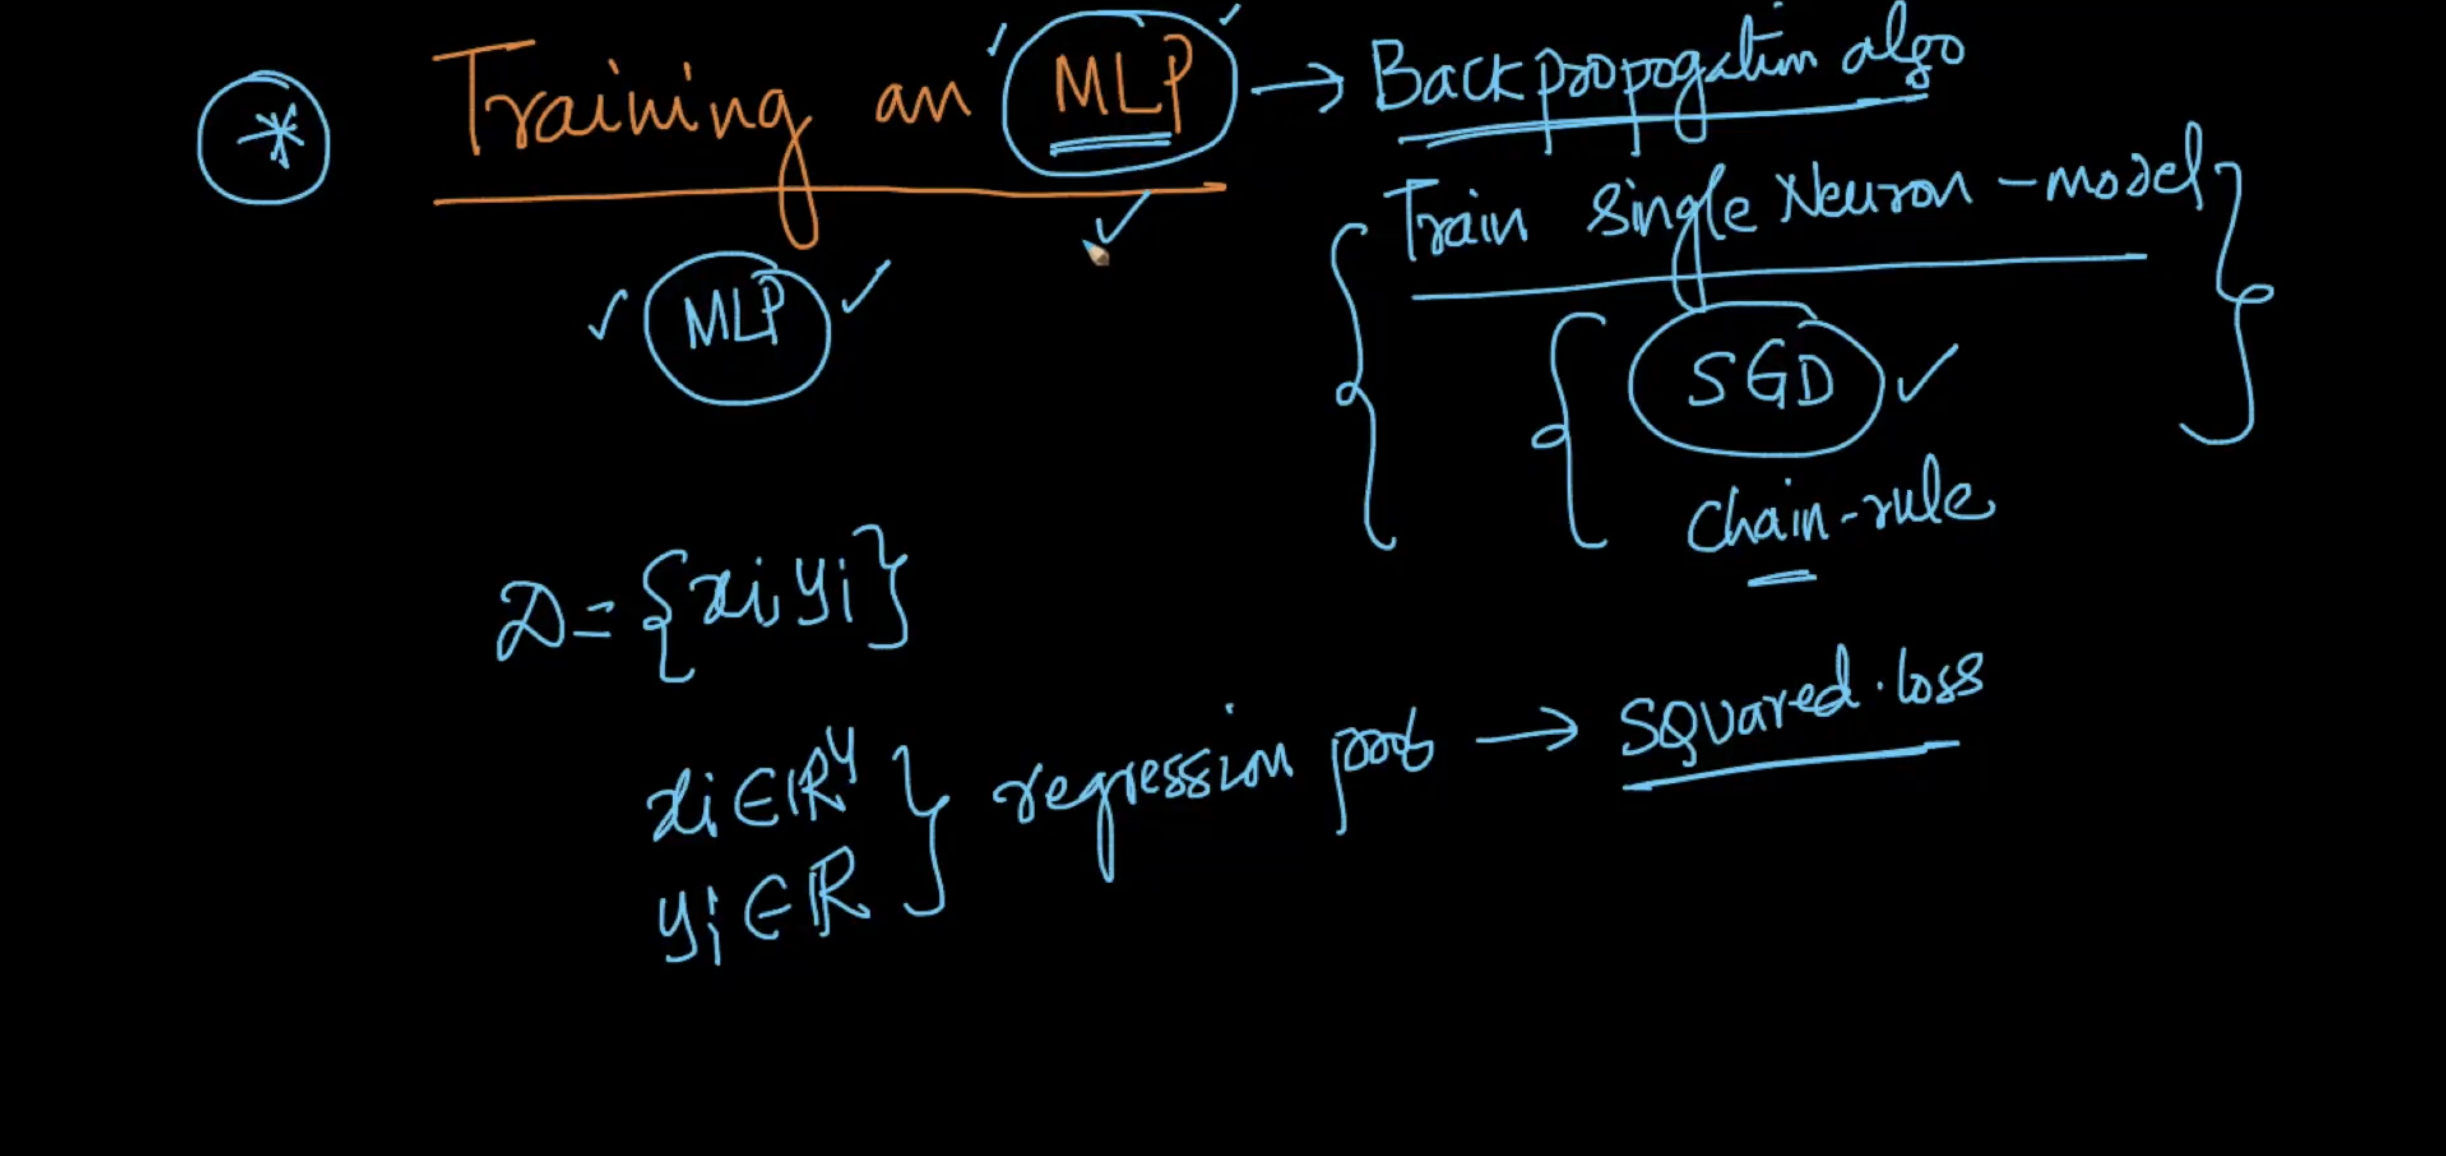 * Training an MLP → Backpropogation algo
Train single Neuron-model
MLP
SGD
chain-rule
D = {xi, yi}
xi ∈ R⁴
yi ∈ R
regression prob → squared.loss